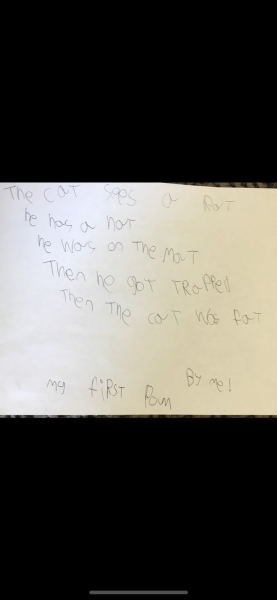 The cat sees a Rat
he has a hat
he was on The Mat
Then he goT TRapped
Then The cat was fat
By me!
my fiRST Poum